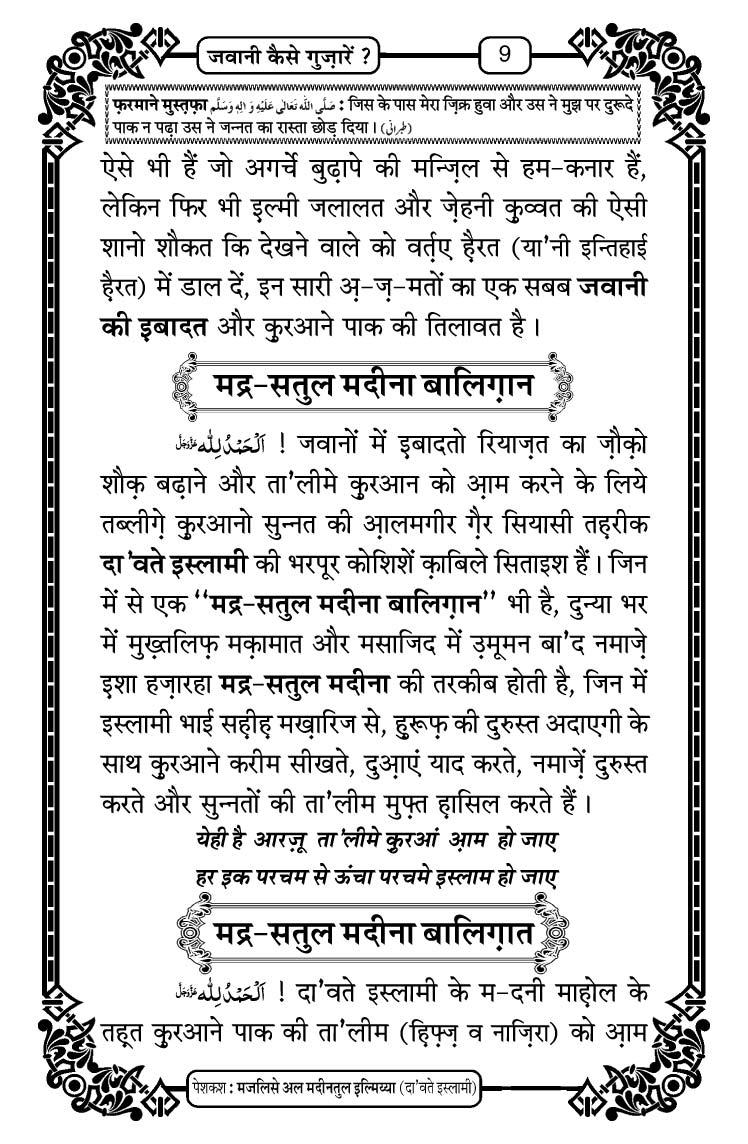 जवानी कैसे गुज़ारें ?
9
फ़रमाने मुस्त़फ़ा صَلَّى اللهُ تَعَالٰى عَلَيْهِ وَاٰلِهٖ وَسَلَّم : जिस के पास मेरा ज़िक्र हुवा और उस ने मुझ पर दुरूदे
पाक न पढ़ा उस ने जन्नत का रास्ता छोड़ दिया । (طبرانی)
ऐसे भी हैं जो अगर्चे बुढ़ापे की मन्ज़िल से हम-कनार हैं,
लेकिन फिर भी इल्मी जलालत और ज़ेहनी क़ुव्वत की ऐसी
शानो शौकत कि देखने वाले को वर्त़ए ह़ैरत (या'नी इन्तिहाई
ह़ैरत) में डाल दें, इन सारी अ़-ज़-मतों का एक सबब जवानी
की इबादत और क़ुरआने पाक की तिलावत है ।
मद्र-सतुल मदीना बालिग़ान
اَلْحَمْدُ لِلّٰه عَزَّوَجَلَّ ! जवानों में इबादतो रियाज़त का ज़ौक़ो
शौक़ बढ़ाने और ता'लीमे क़ुरआन को आ़म करने के लिये
तब्लीग़े क़ुरआनो सुन्नत की आ़लमगीर ग़ैर सियासी तह़रीक
दा'वते इस्लामी की भरपूर कोशिशें क़ाबिले सिताइश हैं । जिन
में से एक ‘‘मद्र-सतुल मदीना बालिग़ान’’ भी है, दुन्या भर
में मुख़्तलिफ़ मक़ामात और मसाजिद में उ़मूमन बा'द नमाज़े
इशा हज़ारहा मद्र-सतुल मदीना की तरकीब होती है, जिन में
इस्लामी भाई सह़ीह़ मख़ारिज से, ह़ुरूफ़ की दुरुस्त अदाएगी के
साथ क़ुरआने करीम सीखते, दुआ़एं याद करते, नमाज़ें दुरुस्त
करते और सुन्नतों की ता'लीम मुफ़्त ह़ासिल करते हैं ।
येही है आरज़ू ता'लीमे क़ुरआं आ़म हो जाए
हर इक परचम से ऊंचा परचमे इस्लाम हो जाए
मद्र-सतुल मदीना बालिग़ात
اَلْحَمْدُ لِلّٰه عَزَّوَجَلَّ ! दा'वते इस्लामी के म-दनी माह़ोल के
तह़त क़ुरआने पाक की ता'लीम (ह़िफ़्ज़ व नाज़िरा) को आ़म
पेशकश : मजलिसे अल मदीनतुल इल्मिय्या (दा'वते इस्लामी)